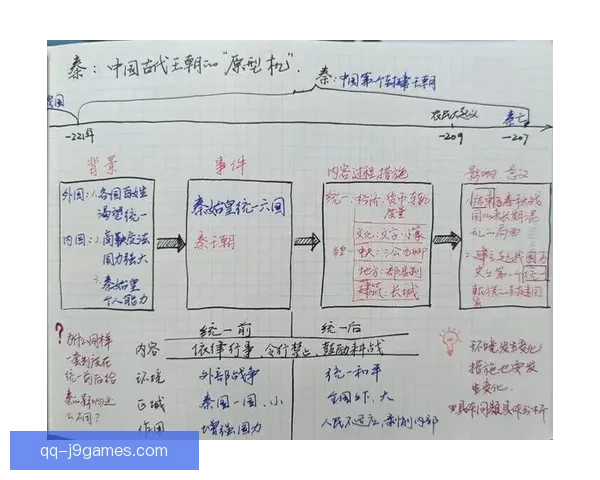 秦：中国古代王朝的“原型机”.
秦:中国第个封建王朝
农民大起义
秦亡
-221年
-209
-207
背景
事件
内容过程措施
影响 意义
外因：1.各国百姓
渴望统一
内因：2.商鞅变法
国力强大
3.秦始皇
个人能力
秦始皇统一六国
秦王朝
统一
度量
文化：文字：小篆
中央：三公九卿
地方：郡县制
建筑：长城
结束了春秋战
国以来长期混
乱的局面
史上第一个统一
统一前
统一后
内容
依律行事 令行禁止 鼓励耕战
环境
外部战争
统一和平
区域
秦国一国，小
全国外，大
作用
增强国力
人民不适应，剥削内部
为什么同样
一套制度在
统一前后给
秦的影响这
么不同？
环境发生变化
措施也要发
生变化.
具体问题具体分析
qq-j9games.com